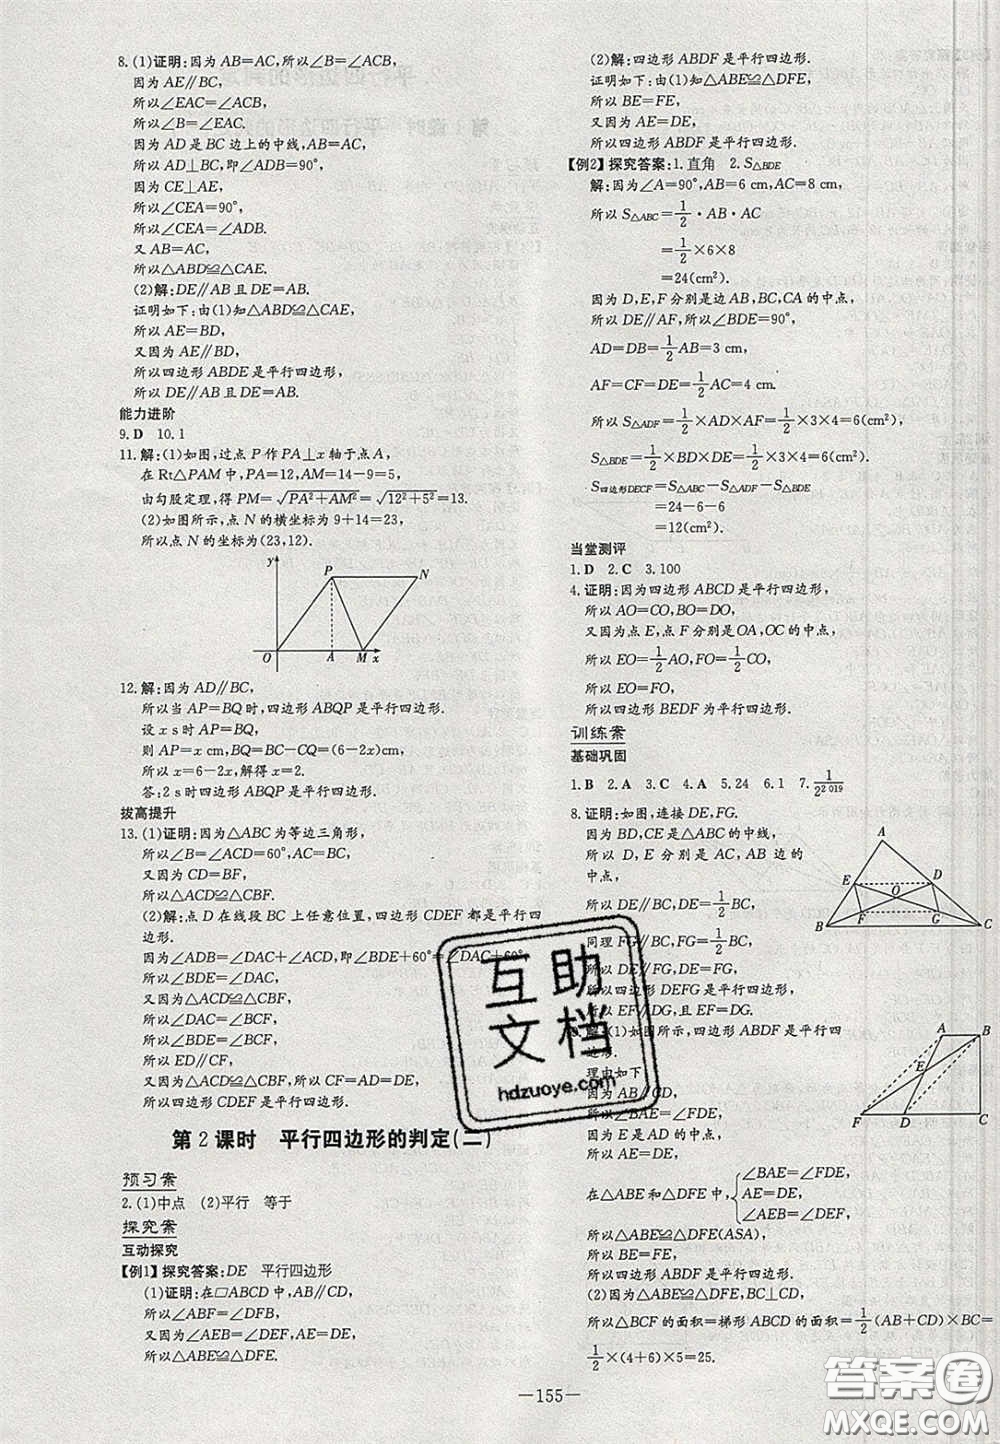 8.(1)证明:因为AB=AC,所以∠B=∠ACB,
因为AE∥BC,
所以∠EAC=∠ACB,
所以∠B=∠EAC.
因为AD是BC边上的中线,AB=AC,
所以AD⊥BC,即∠ADB=90°,
因为CE⊥AE,
所以∠CEA=90°,
所以∠CEA=∠ADB.
又AB=AC,
所以△ABD≌△CAE.
(2)解:DE∥AB且DE=AB.
证明如下:由(1)知△ABD≌△CAE,
所以AE=BD,
又因为AE∥BD,
所以四边形ABDE是平行四边形,
所以DE∥AB且DE=AB.
能力进阶
9.D 10.1
11.解:(1)如图,过点P作PA⊥x轴于点A,
在Rt△PAM中,PA=12,AM=14-9=5,
由勾股定理,得PM=√PA²+AM²=√12²+5²=13.
(2)如图所示,点N的横坐标为9+14=23,
所以点N的坐标为(23,12).
y P N O A M x
12.解:因为AD∥BC,
所以当AP=BQ时,四边形ABQP是平行四边形.
设x s时四边形ABQP是平行四边形,
则AP=x cm,BQ=BC-CQ=(6-2x)cm,
所以x=6-2x,解得x=2.
答:2 s时四边形ABQP是平行四边形.
拔高提升
13.(1)证明:因为△ABC为等边三角形,
所以∠B=∠ACD=60°,AC=BC,
又因为CD=BF,
所以△ACD≌△CBF.
(2)解:点D在线段BC上任意位置,四边形CDEF都是平行四边形.
因为∠ADB=∠DAC+∠ACD,即∠BDE+60°=∠DAC+60°,
所以∠BDE=∠DAC,
又因为△ACD≌△CBF,
所以∠DAC=∠BCF,
所以∠BDE=∠BCF,
所以ED∥CF,
又因为△ACD≌△CBF,所以CF=AD=DE,
所以四边形CDEF是平行四边形.
第2课时 平行四边形的判定(二)
预习案
2.(1)中点 (2)平行 等于
探究案
互动探究
【例1】探究答案:DE 平行四边形
(1)证明:在▱ABCD中,AB∥CD,
所以∠ABF=∠DFB,
又因为∠AEB=∠DEF,AE=DE,
所以△ABE≌△DFE.
(2)解:四边形ABDF是平行四边形.
证明如下:由(1)知△ABE≌△DFE,
所以BE=FE,
又因为AE=DE,
所以四边形ABDF是平行四边形.
【例2】探究答案:1.直角 2.S△BDE
解:因为∠A=90°,AB=6 cm,AC=8 cm,
所以S△ABC=1/2·AB·AC
=1/2×6×8
=24(cm²).
因为D,E,F分别是AB,BC,CA的中点,
所以DE∥AF,所以∠BDE=90°,
AD=DB=1/2AB=3 cm,
AF=CF=DE=1/2AC=4 cm.
所以S△ADF=1/2×AD×AF=1/2×3×4=6(cm²),
S△BDE=1/2×BD×DE=1/2×3×4=6(cm²),
S四边形DECF=S△ABC-S△ADF-S△BDE
=24-6-6
=12(cm²).
当堂测评
1.D 2.C 3.100
4.证明:因为四边形ABCD是平行四边形,
所以AO=CO,BO=DO,
又因为点E,点F分别是OA,OC的中点,
所以EO=1/2AO,FO=1/2CO,
所以EO=FO.
所以四边形BEDF为平行四边形.
训练案
基础巩固
1.B 2.A 3.C 4.A 5.24 6.1 7.1/2²⁰¹⁹
8.证明:如图,连接DE,FG.
因为BD,CE是△ABC的中线,
所以D,E分别是AC,AB边的中点,
所以DE∥BC,DE=1/2BC,
同理FG∥BC,FG=1/2BC,
所以DE∥FG,DE=FG,
所以四边形DEFG是平行四边形,
所以EF∥DG,EF=DG.
A E D O B F G C
(1)如图所示,四边形ABDF是平行四边形.
理由如下
因为AB∥CD,
所以∠BAE=∠FDE,
因为E为AD
所以AE=DE,
在△ABE和△DFE中,{∠BAE=∠FDE, AE=DE, ∠AEB=∠DEF,
所以△ABE≌△DFE(ASA).
所以BE=FE,
所以四边形ABDF是平行四边形.
(2)因为△ABE≌△DFE,BC⊥CD,
所以△BCF的面积=梯形ABCD的面积=1/2(AB+CD)×BC=
1/2×(4+6)×5=25.
A B E F D C
互助文档
hdzuoye.com
—155—
答案圈
MXQE.COM